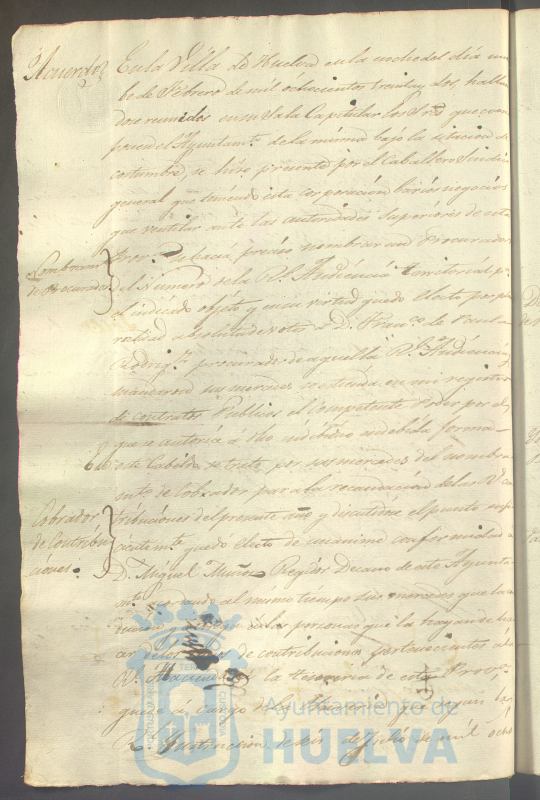 Acuerdo
En la Villa de Huelva en la noche del día nue
be de Febrero de mil ochocientos treinta y dos, hallan
dose reunidos en su Sala Capitular los Sres que com
ponen el Ayuntamto de la misma bajo la citacion de
costumbre, se hizo presente por el Caballero Sindico
general que teniendo esta corporacion barios negocios
que ventilar ante las autoridades Superiores de esta
Prova se hacia preciso nombrar un Procurador
Nombramto
de Procurador
del Número de la Rl Audiencia territorial pa
el indicado objeto y en su virtud quedó electo por plu
ralidad absoluta de votos a D. Franco de Paula
Rodrigz procurador de aquella Rl Audiencia,
mandaron sus mercedes se estienda en mi registro
de contratos Publicos el Competente Poder por el
que se autorice a dho individuo en debida forma
En este Cabildo se trató por sus mercedes del nombra
miento de Cobrador para la recaudacion de las Rs con
Cobrador
de Contribu
ciones.
tribuciones del presente año y discutido el punto sufi
cientemte quedó electo de unanime conformidad
D. Miguel Muñoz Regidor Decano de este Ayunta
mto al mismo tiempo sus mercedes que la
de las personas que la hayan de
de contribuciones pertenecientes a la
Rl Hacienda en la tesoreria de esta Prova
quede a cargo de segun la
R. Instruccion de seis de Julio de mil ocho
Ayuntamiento de
HUELVA